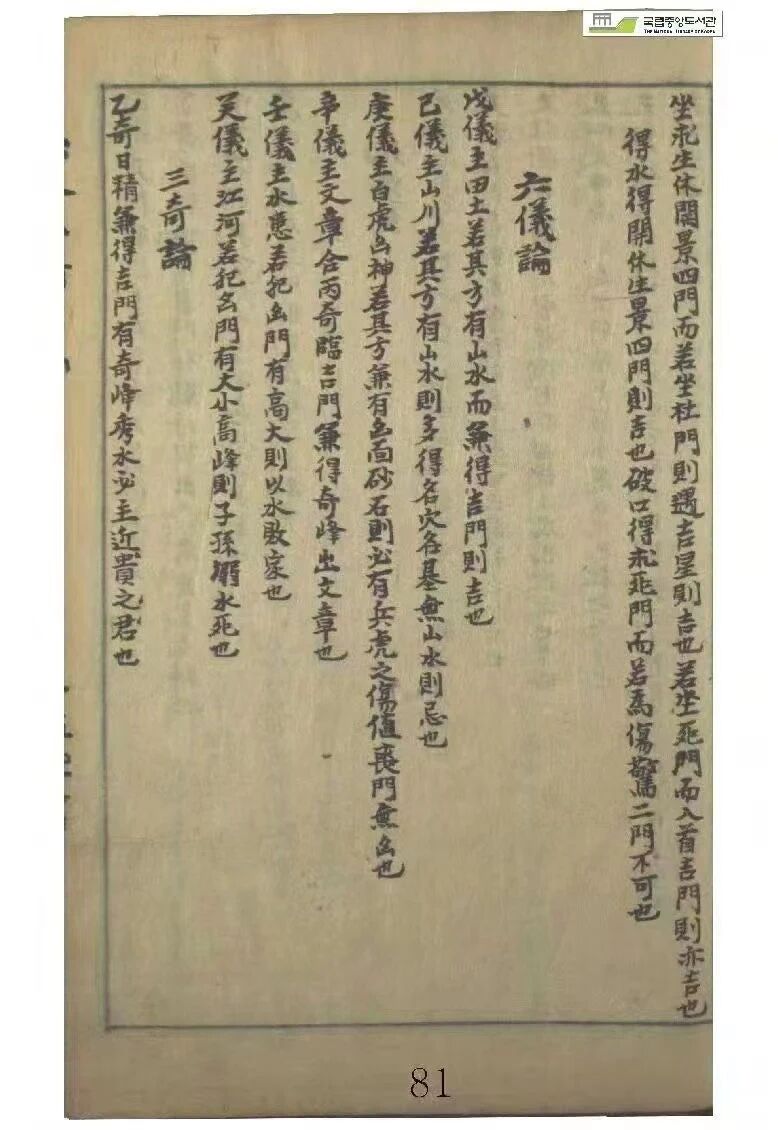 국립중앙도서관
THE NATIONAL LIBRARY OF KOREA
坐求生休開景四門而若坐杜門則遇吉星則吉也若坐死門而入首吉門則亦吉也
得水得開休生景四門則吉也破口得求死門而若爲傷驚二門不可也
六儀論
戊儀主田土若其方有山水而兼得吉門則吉也
己儀主山川若其方有山水則多得名穴名基無山水則忌也
庚儀主白虎凶神若其方兼有凶面砂石則必有兵虎之傷値喪門無凶也
辛儀主文章合丙奇臨吉門兼得奇峰出文章也
壬儀主水患若犯凶門有高大則以水敗家也
癸儀主江河若犯凶門有大小高峰則子孫溺水死也
三奇論
乙奇日精兼得吉門有奇峰秀水必主近貴之君也
81